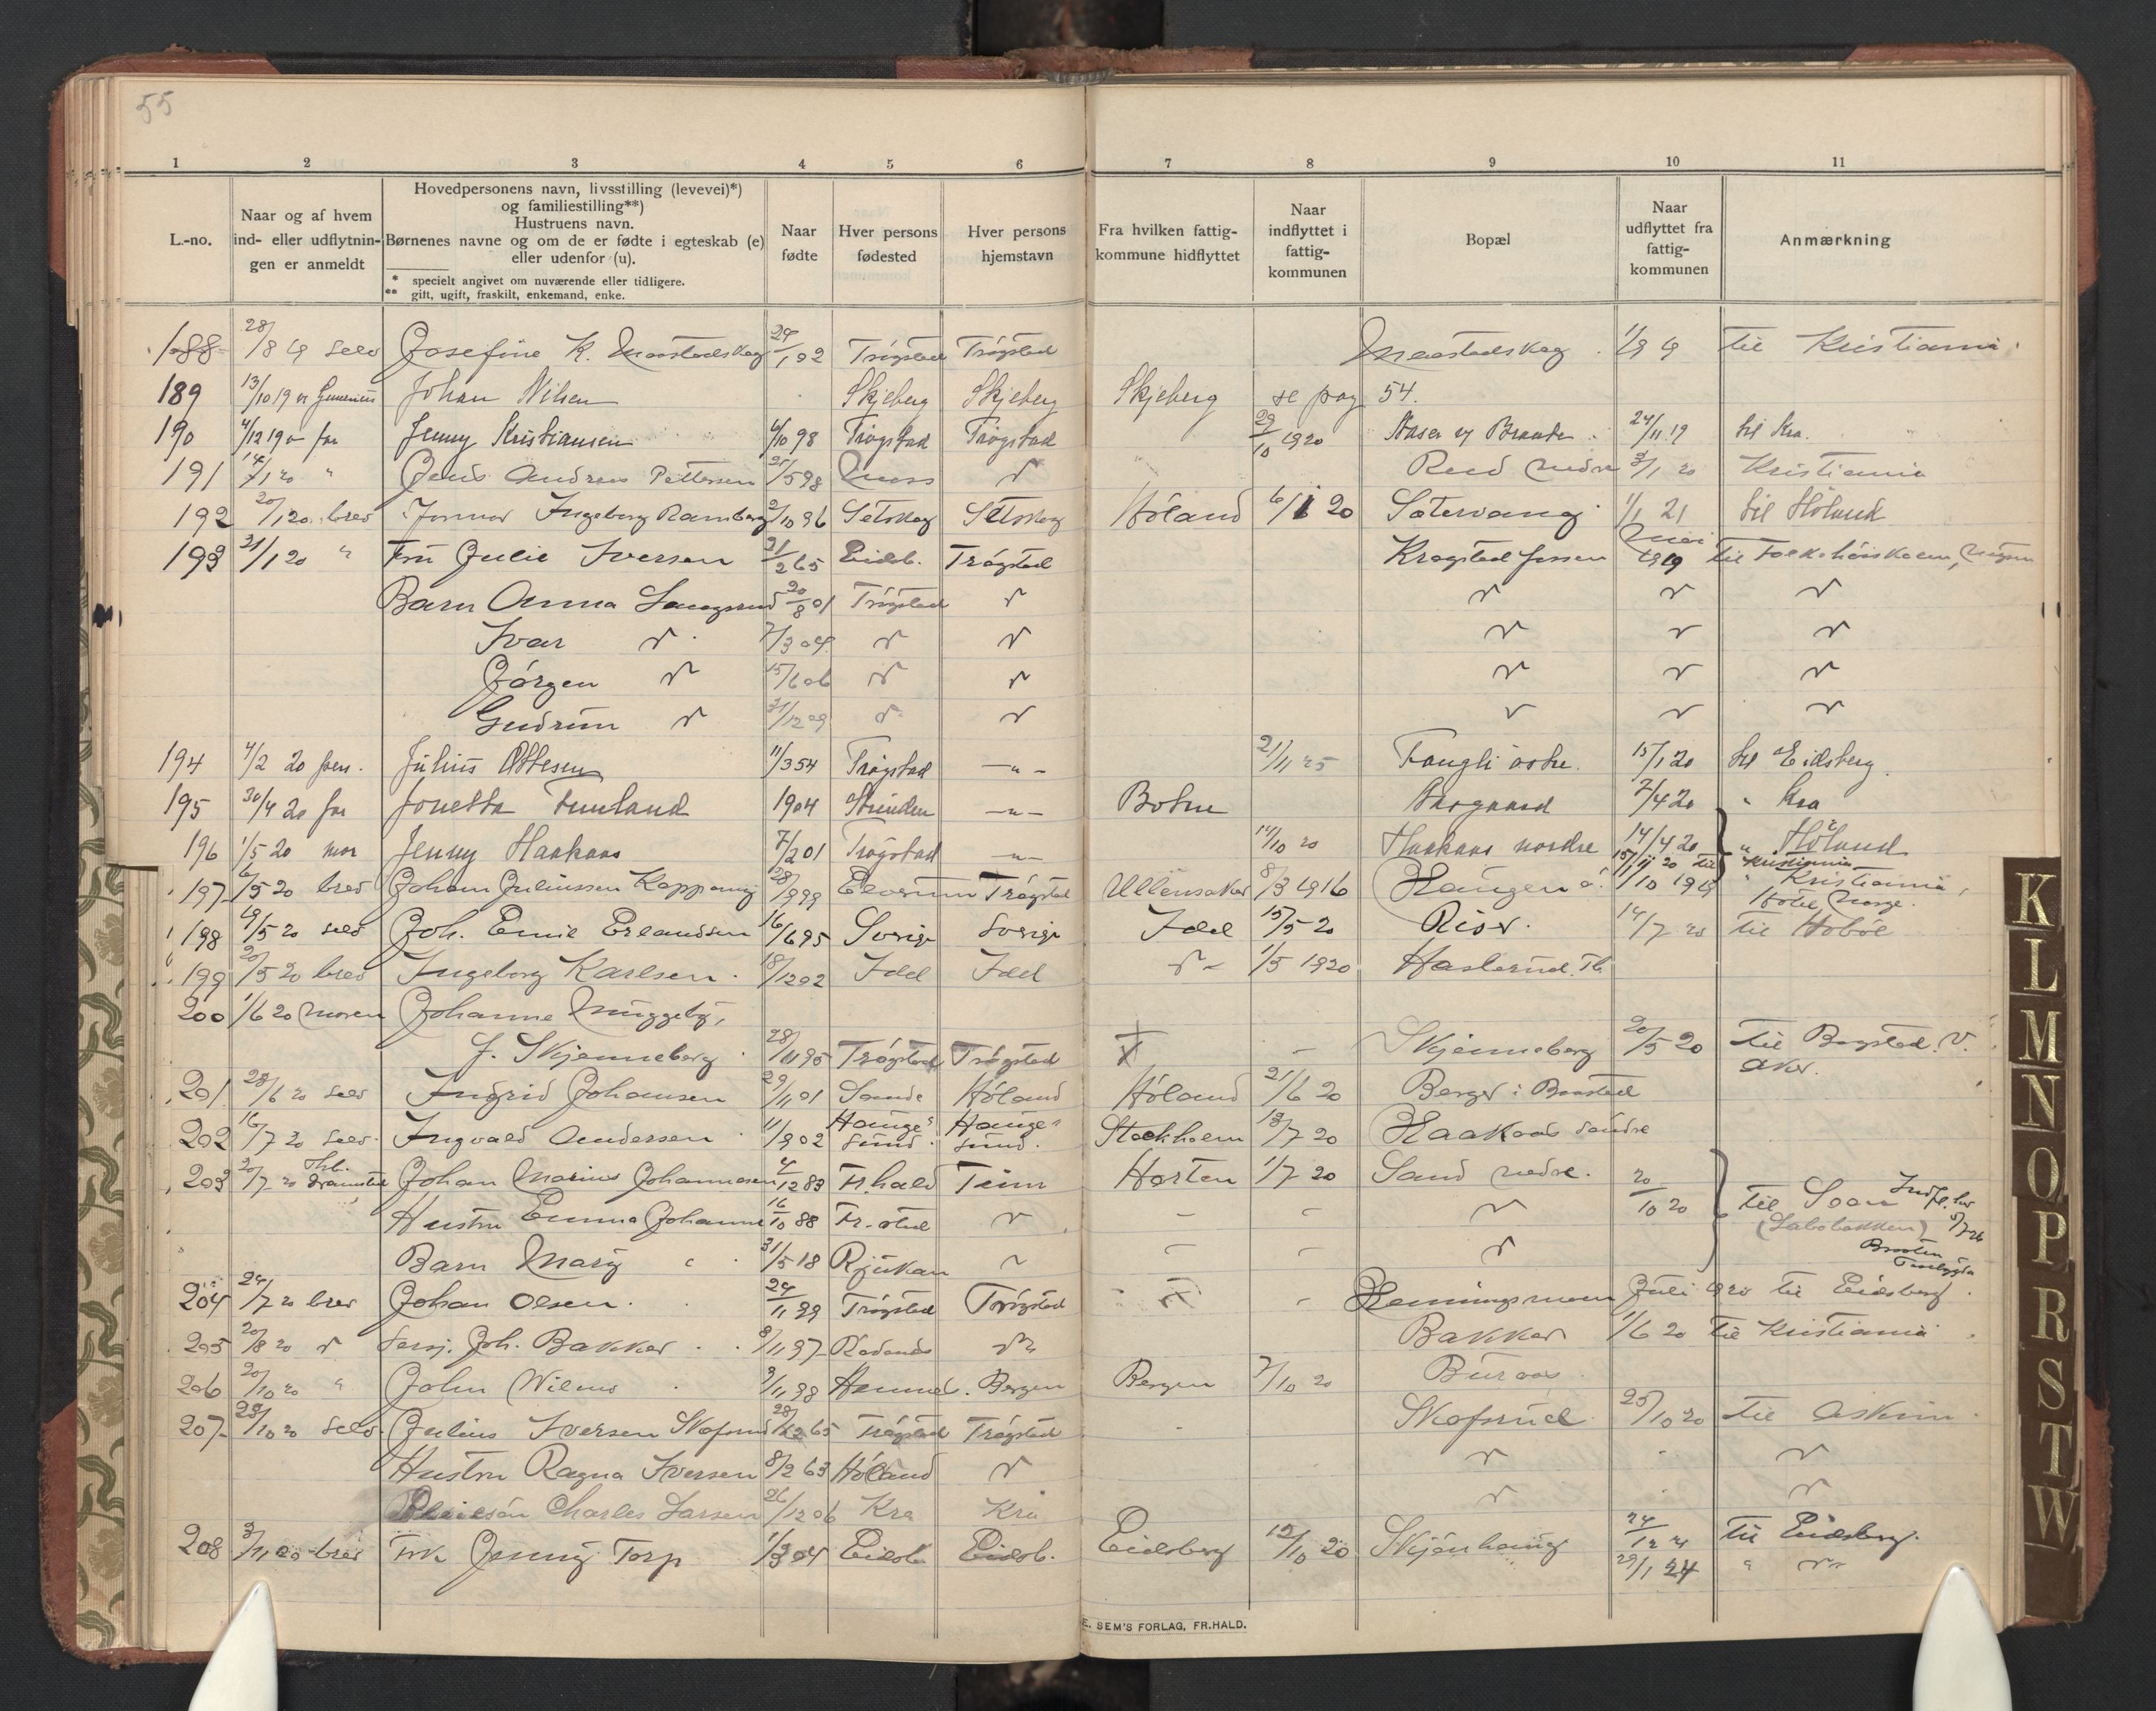 55
1 2 3 4 5 6 7 8 9 10 11
L.-no.
Naar og af hvem
ind- eller udflytnin-
gen er anmeldt
Hovedpersonens navn, livsstilling (levevei)*)
og familiestilling**)
Hustruens navn.
Børnenes navne og om de er fødte i egteskab (e)
eller udenfor (u).
* specielt angivet om nuværende eller tidligere.
** gift, ugift, fraskilt, enkemand, enke.
Naar
fødte
Hver persons
fødested
Hver persons
hjemstavn
Fra hvilken fattig-
kommune hidflyttet
Naar
indflyttet i
fattig-
kommunen
Bopæl
Naar
udflyttet fra
fattig-
kommunen
Anmærkning
188 28/8 19 selv Josefine K. Trøgstad Trøgstad 1/9 19 til Kristiania
189 13/10 19 Johan Nilsen Skjeberg Skjeberg Skjeberg se pag 54.
190 4/12 19 far Jenny Kristiansen 4/10 98 Trøgstad Trøgstad 29/10 1920 24/11 19 til Kra.
191 " Jens Andreas Pettersen 21/5 98 Moss 3/1 20 Kristiania
192 20/1 20 brev Jomar Ingeborg Ramberg 2/10 96 Setskog Setskog Høland 6/1 20 Sætervang 1/1 21 til Høland
193 21/1 20 " Fru Julie Iversen 21/2 65 Eidsb. Trøgstad Krogstad Mai 1919 til Folkehøiskolen, Mysen
Barn Anna 20/8 01 Trøgstad
Ivar 7/3 04
Jørgen 15/6 06
Gudrun 31/12 09
194 4/2 20 Julius Ottesen 11/3 54 Trøgstad —"— 21/11 25 Fougli østre. 15/1 20 til Eidsberg
195 30/4 20 far Jonetta 1904 —"— Botne 2/4 20 " Kra
196 1/5 20 mor Jenny Haakaas 7/2 01 Trøgstad —"— 14/10 20 Haakaas nordre 14/4 20 " Høland
15/11 20 til Kristiania
197 6/5 20 brev Johan Juliussen Koppang 28/9 99 Elverum Trøgstad Ullensaker 8/3 1916 Haugen ø. 1/10 1919 " Kristiania,
Hotel Norge.
198 19/5 20 selv Joh. Emil Erlandsen 16/6 95 Sverige Sverige Idd 15/5 20 Risø. 14/7 20 til Hobøl
199 20/5 20 brev Ingeborg Karlsen 18/12 02 Idd Idd 1/5 1920 Haslerud
200 1/6 20 moren Johanne Muggeby,
f. Skjenneberg 28/11 95 Trøgstad Trøgstad – Skjenneberg 20/5 20 til Bogstad. V.
aker.
201 28/6 20 selv Ingrid Johansen 29/11 01 Sande Høland Høland 21/6 20 Berger i Baastad
202 16/7 20 selv Ingvald Andersen 1/9 02 Hauge-
sund. Hauge-
sund. Stockholm 13/7 20 Haakaas søndre
203 20/7 20 Johan Marius Johannesen 4/12 83 Fr.hald Horten 1/7 20 Sand nedre. 20/10 20 til Soon
Hustru Emma Johanne 16/10 88 Fr.-stad – –
Barn Mary " 31/5 18 Rjukan – –
204 24/7 20 brev Johan Olsen. 24/11 99 Trøgstad Trøgstad – Henningsmoen Juli 1920 til Eidsberg
205 20/8 20 Sersj. Joh. Bakker 8/11 97 Bakker 1/6 20 til Kristiania
206 20/10 20 " John Wilms 9/11 98 Bergen Bergen 7/10 20 Buraas
207 23/10 20 selv. Julius Iversen Skofsrud 28/12 65 Trøgstad Trøgstad Skofsrud 25/10 20 til Askim
Hustru Ragna Iversen 8/2 63 Høland
Pleiesøn Charles Larsen 26/12 06 Kra Kra
208 3/11 20 brev Frk Jenny Torp 1/3 04 Eidsb. Eidsb. Eidsberg 12/10 20 Skjønhaug til Eidsberg.
29/1 24 "
E. SEM'S FORLAG, FR.HALD.
K
L
M
N
O
P
R
S
T
W